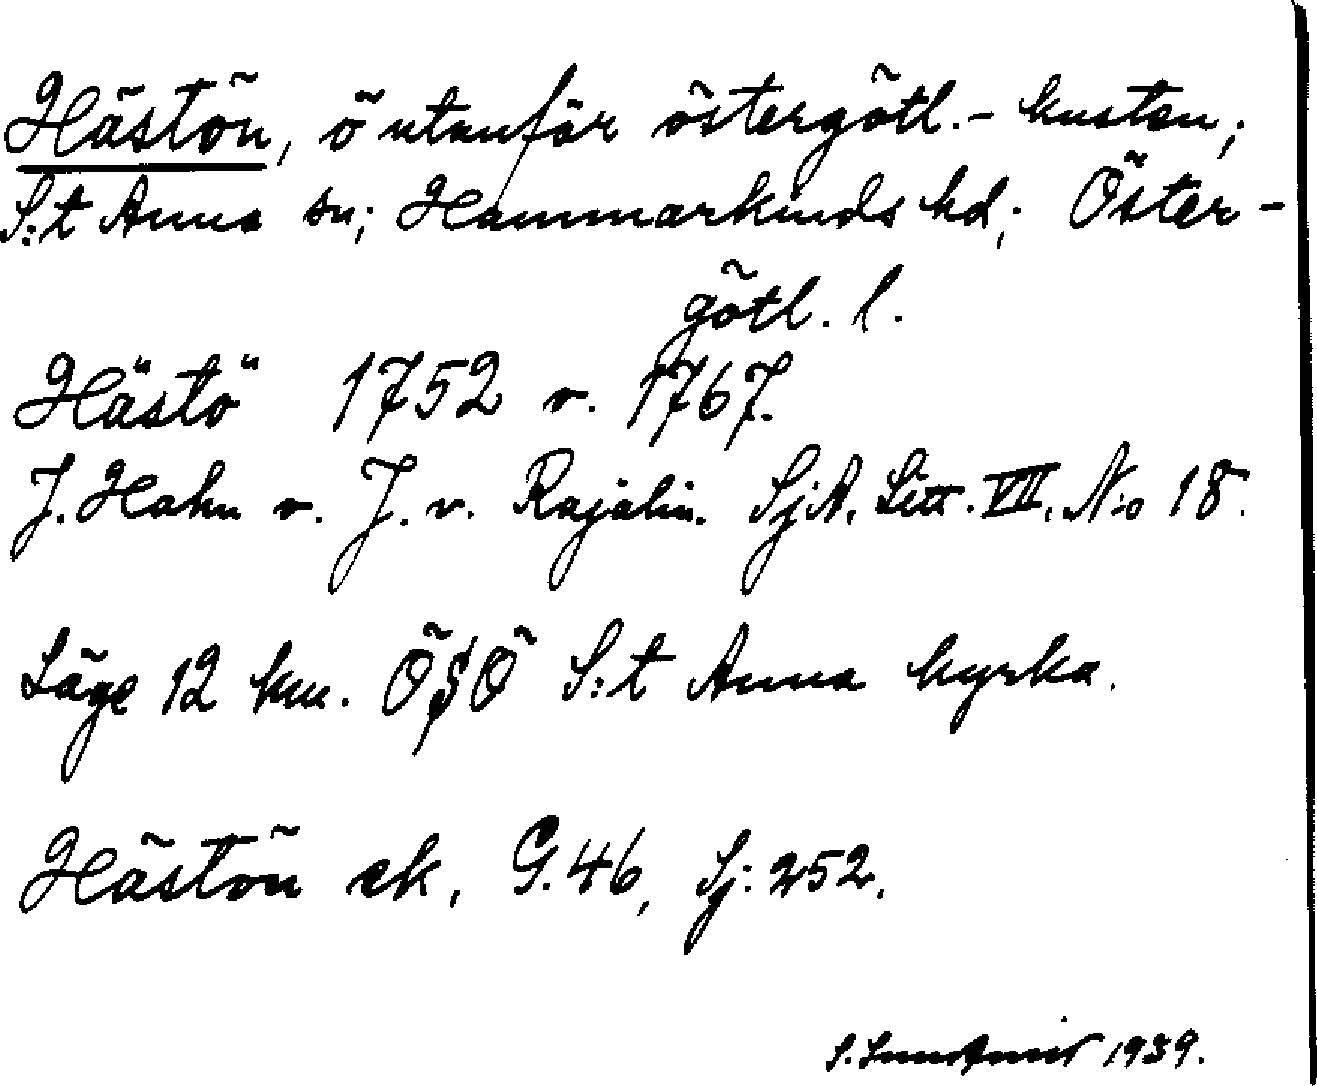 Hästön, ö utanför östergötl.- kusten;
S:t Anna sn; Hammarkinds hd; Öster-
götl. l.
Hästö 1752 o. 1767.
J. Hahn o. J. v. Rajalin. SjA. Litt. VIII. N:o 18.
Läge 12 km. ÖSÖ S:t Anna kyrka.
Hästön ek, G. 46, Sj: 252.
1939.